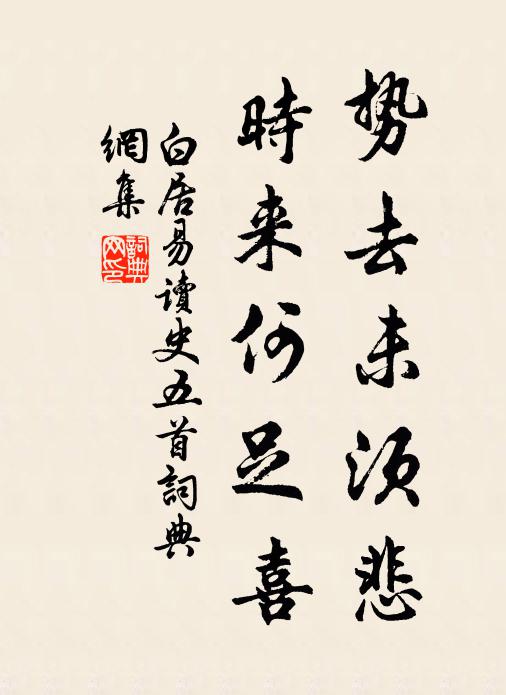 勢去未須悲
時来何足喜
白居易讀史五首詞典
網集
詞典
网印